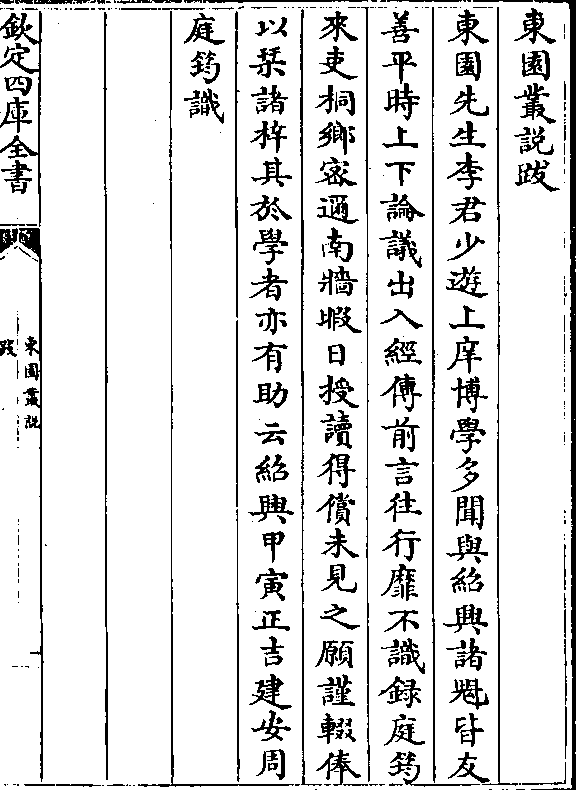 東園叢說跋
東園先生李君少遊上庠博學多聞與紹興諸魁皆友
善平時上下論議出入經傳前言往行靡不識録庭筠
來吏桐鄉密邇南牆暇日授讀得償未見之願謹輟俸
以琹諸梓其於學者亦有助云紹興甲寅正吉建安周
庭筠識
欽定四庫全書
東園叢說
跋
一